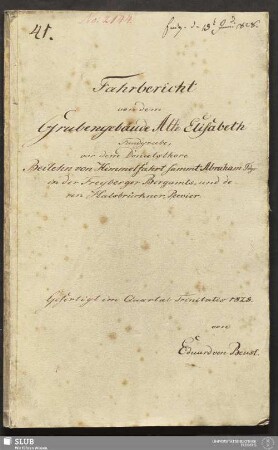 41.
No: 2144.
Fahrbericht
von dem
Grubengebäude Alte Elisabeth
Fundgrube,
vor dem Donatsthore
Beilehn von Himmelfahrt sammt Abraham Fdgr
in der Freyberger Bergamts, und de
ren Halsbrückner Revier.
Gefertigt im Quartal Trinitatis 1828.
von
Eduard von Beust.
SLUB
Wir führen Wissen.